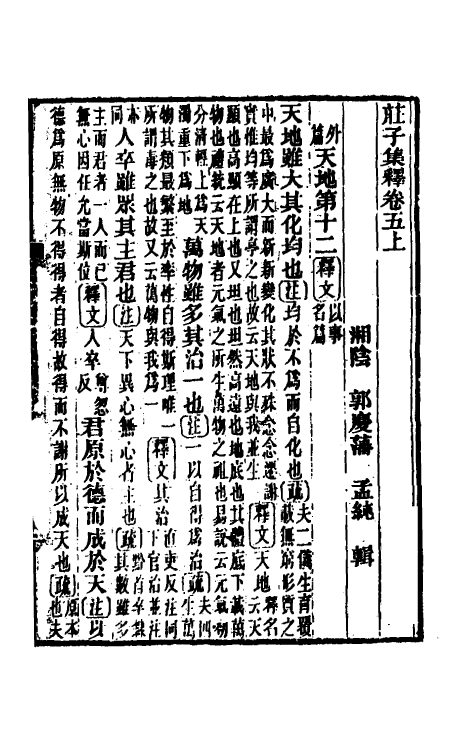 莊子集釋卷五上
湘陰 郭慶藩 孟純 輯
外篇天地第十二釋文以事名篇
天地雖大其化均也注均於不爲而自化也疏夫二儀生育覆載無窮形質之
中最爲廣大而新新變化其狀不殊念念遷謝實惟均等所謂亭之也故云天地與我並生釋文天地釋名云天
顯也高顯在上也又坦也坦然高遠也地底也其體底下載萬物也禮統云天地者元氣之所生萬物之祖也易說云元氣初
分清輕上爲天濁重下爲地萬物雖多其治一也注一以自得爲治疏夫四生萬
物其類最繁至於率性自得斯理唯一所謂毒之也故又云萬物與我爲一釋文其治直吏反注同下官治並注
同人卒雖眾其主君也注天下異心無心者主也疏黔首卒隸其數雖多
主而君者一人而已無心因任允當斯位釋文人卒尊忽反君原於德而成於天注以
德爲原無物不得得者自得故得而不謝所以成天也疏原本也夫